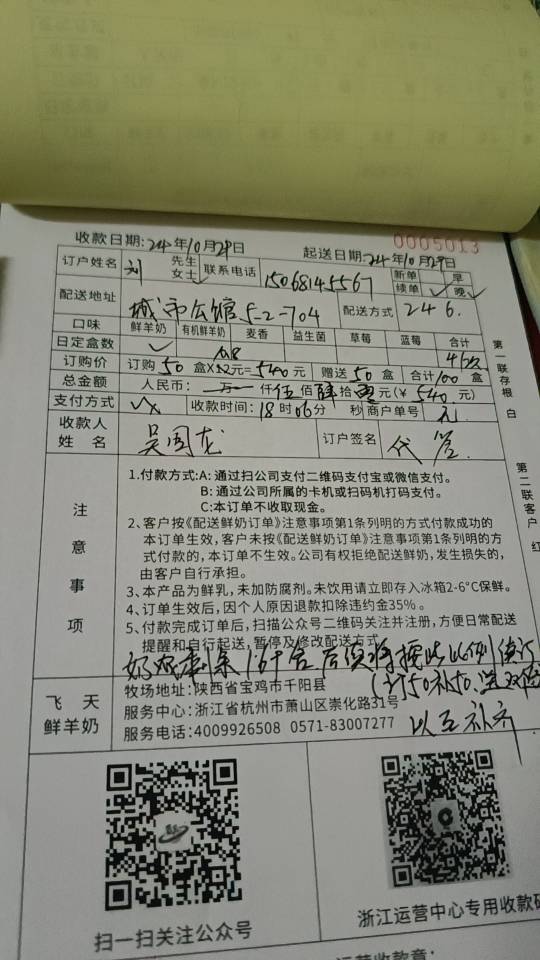 收款日期:24年10月29日
起送日期:24年10月29日
0005013
订户姓名 刘 先生 女士✓ 联系电话 15068145567 新单 续单✓ 早 晚✓
配送地址 城市公馆5-2-704 配送方式 246.
口味 鲜羊奶 有机鲜羊奶 麦香 益生菌 草莓 蓝莓 合计
日定盒数 ✓
订购价 订购50盒X 10.8 元=540元 赠送50盒 合计100盒
总金额 人民币: 仟伍佰肆拾零元(¥540元)
支付方式 收款时间:18时06分 秒 商户单号
收款人姓名 吴国龙 订户签名 代签
第一联存根 白
第二联客户 红
注意事项
1.付款方式:A: 通过扫公司支付二维码支付宝或微信支付。
B: 通过公司所属的卡机或扫码机打码支付。
C:本订单不收取现金。
2、客户按《配送鲜奶订单》注意事项第1条列明的方式付款成功的
本订单生效，客户未按《配送鲜奶订单》注意事项第1条列明的方
式付款的，本订单不生效。公司有权拒绝配送鲜奶，发生损失的，
由客户自行承担。
3、本产品为鲜乳，未加防腐剂。未饮用请立即存入冰箱2-6°C保鲜。
4、订单生效后，因个人原因退款扣除违约金35%。
5、付款完成订单后，扫描公众号二维码关注并注册，方便日常配送
提醒和自行起送，暂停及修改配送方式
飞天鲜羊奶
牧场地址:陕西省宝鸡市千阳县
服务中心:浙江省杭州市萧山区崇化路31号
服务电话:4009926508 0571-83007277
以互补齐
扫一扫关注公众号
浙江运营中心专用收款码
运营收款章: